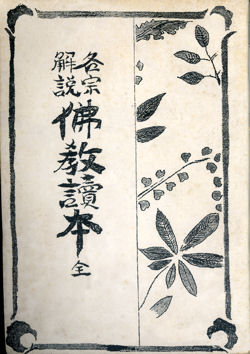 各宗
解説
佛教讀本
全